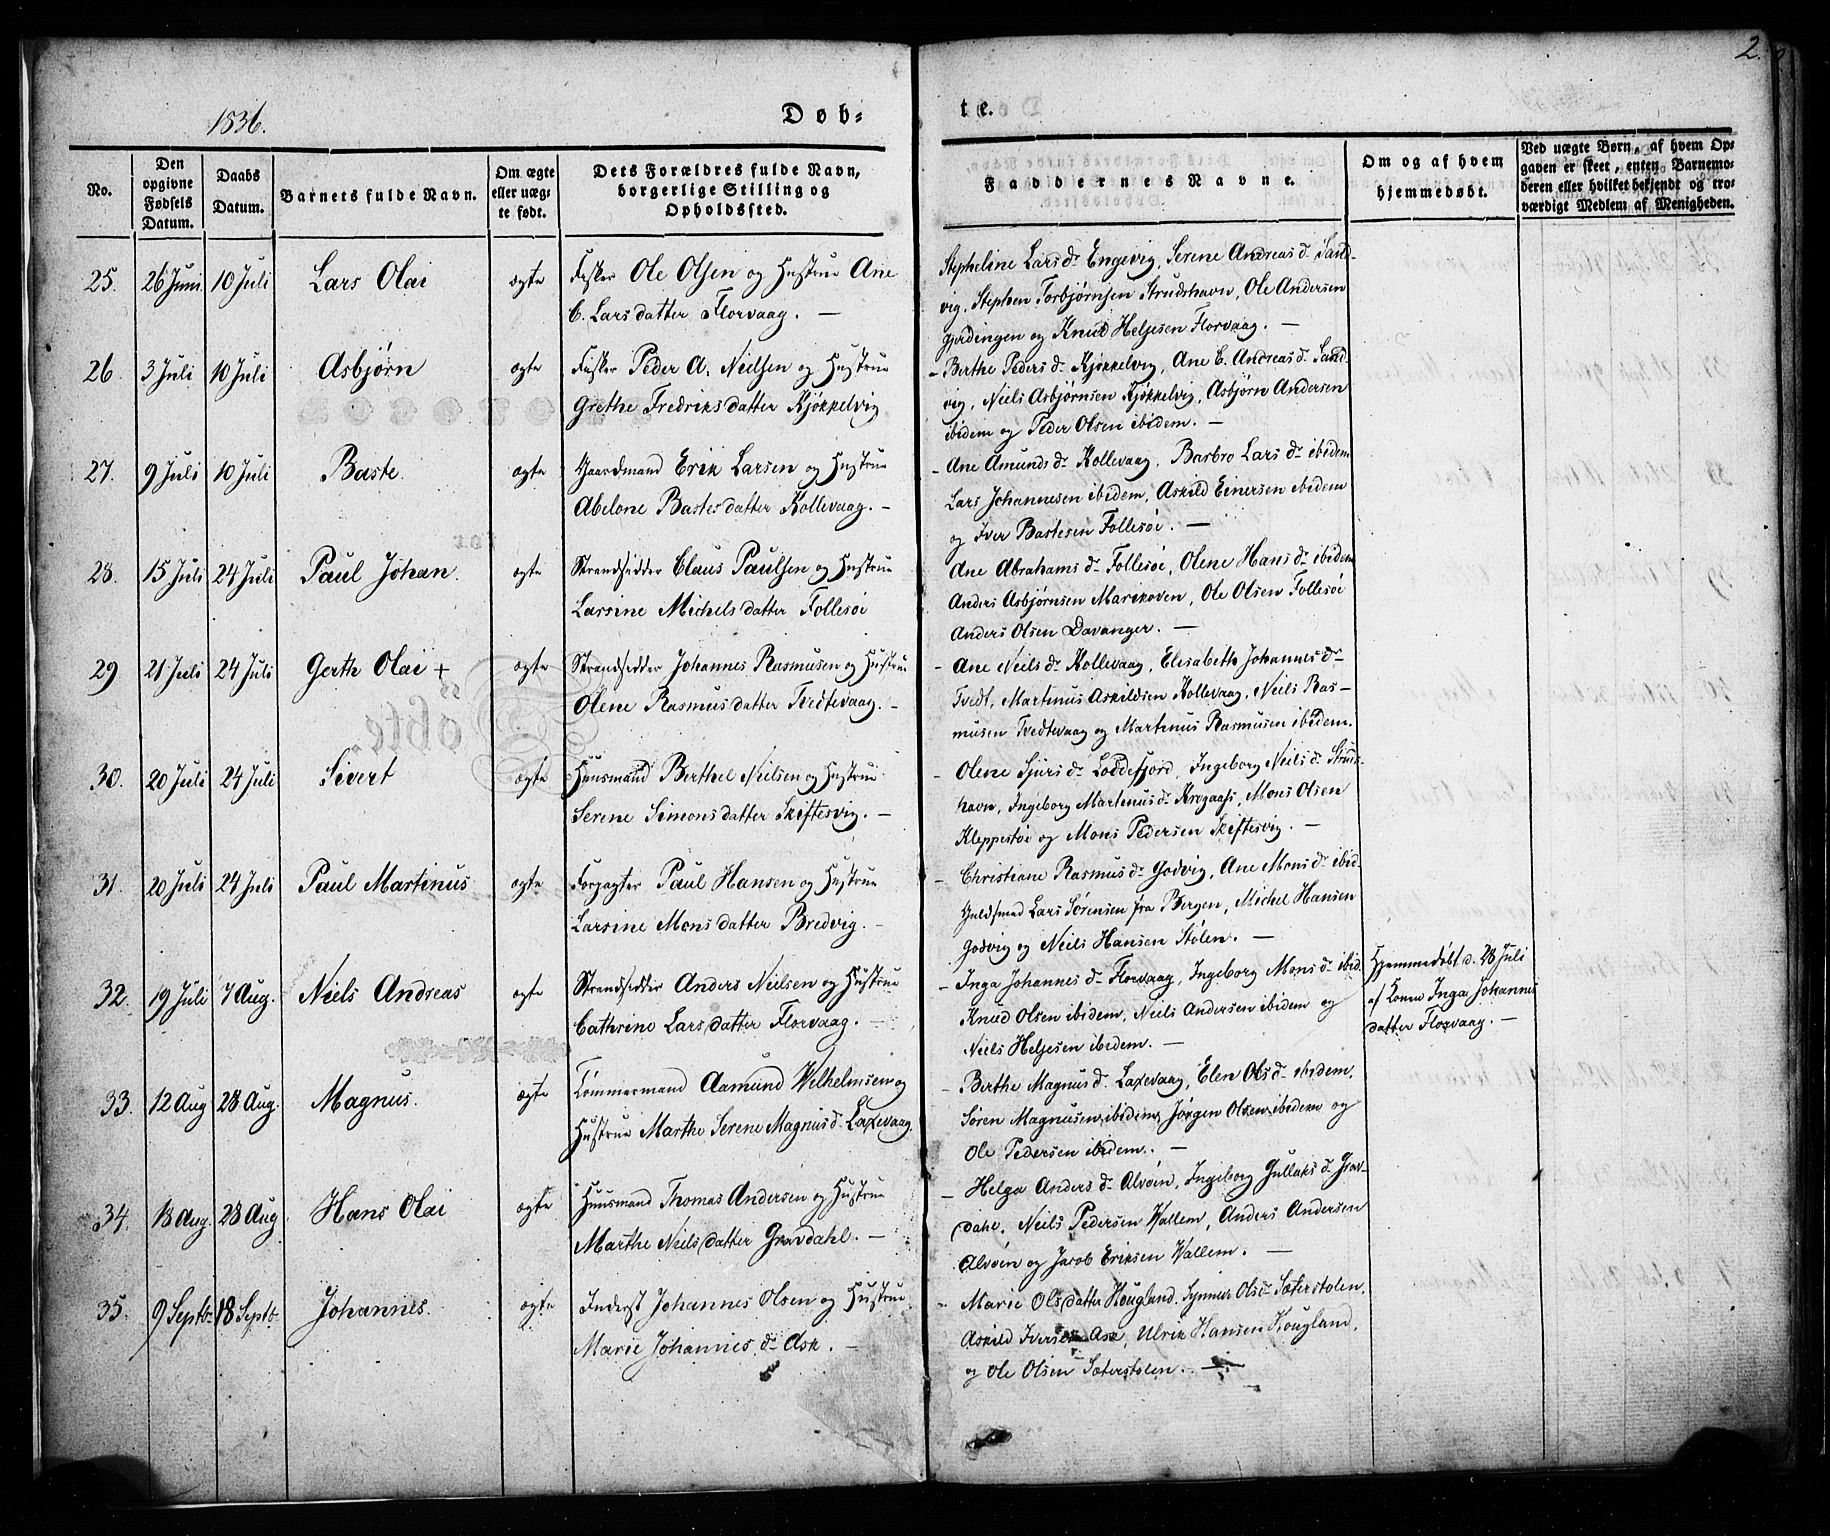 2.
1836.
Døb-
te.
No.
Den opgivne Fødsels Datum.
Daabs Datum.
Barnets fulde Navn.
Om ægte eller uægte født.
Dets Forældres fulde Navn, borgerlige Stilling og Opholdssted.
Faddernes Navne.
Om og af hvem hjemmedøbt.
Ved uægte Børn, af hvem Opgaven er skeet, enten Barnemoderen eller hvilket bekjendt og troværdigt Medlem af Menigheden.
25. 26 Juni 10 Juli Lars Olai ægte Fisker Ole Olsen og Hustrue Ane
C. Larsdatter Florvaag. —
Stepheline Larsd. Engevig, Serene Andreasd. Sand-
vig, Stephen Torbjørnsen Strudshavn, Ole Andersen
Gjerdingen og Knud Heljesen Florvaag. —
26. 3 Juli 10 Juli Asbjørn ægte Fisker Peder A. Nielsen og Hustrue
Grethe Fredriksdatter Kjøkkelvig
- Berthe Pedersd. Kjøkkelvig, Ane E. Andreasd. Sand-
vig, Niels Asbjørnsen Kjøkkelvig, Asbjørn Andersen
ibidem og Peder Olsen ibidem. —
27. 9 Juli 10 Juli Baste. ægte Gaardmand Erik Larsen og Hustrue
Abelone Bastesdatter Kollevaag. —
- Ane Amundsd. Kollevaag, Barbro Larsd. ibidem
Lars Johannesen ibidem, Askild Einersen ibidem
og Iver Bastesen Follesøe. —
28. 15 Juli 24 Juli Paul Johan. ægte Strandsidder Claus Paulsen og Hustrue
Larsine Michelsdatter Follesøe
Ane Abrahamsd. Follesøe, Olene Hansd. ibidem
Anders Asbjørnsen Marikoven, Ole Olsen Follesøe
Anders Olsen Davanger. —
29 21 Juli 24 Juli Gerth Olai + ægte Strandsidder Johannes Rasmusen og Hustrue
Olene Rasmusdatter Tvedtevaag. —
- Ane Nielsd. Kollevaag, Elisabeth Johannesd.
Tvedt, Martinus Askildsen Kollevaag, Niels Ras-
musen Tvedtevaag og Martinus Rasmusen ibidem.
30. 20 Juli 24 Juli Sivert ægte Huusmand Berthel Nielsen og Hustrue
Serene Simonsdatter Skiftesvig. —
- Olene Sjursd. Loddefjord, Ingeborg Nielsd. Struds-
havn, Ingeborg Martinusd. Krogaas, Mons Olsen
Kleppestøe og Mons Pedersen Skiftesvig. —
31. 20 Juli 24 Juli Paul Martinus ægte Forpagter Paul Hansen og Hustrue
Larsine Monsdatter Bredvig. —
- Christiane Rasmusd. Godvig, Ane Monsd. ibid.
Guldsmed Lars Sørensen fra Bergen, Michel Hansen
Godvig og Niels Hansen Stølen. —
32. 19 Juli 7 Aug. Niels Andreas ægte Strandsidder Anders Nielsen og Hustrue
Cathrine Larsdatter Florvaag. —
- Inga Johannesd. Florvaag, Ingeborg Monsd. ibid.
Knud Olsen ibidem, Niels Andersen ibidem og
Niels Heljesen ibidem. —
Hjemmedøbt d. 28 Juli
af Konen Inga Johannes
datter Florvaag. —
33. 12 Aug 28 Aug. Magnus. ægte Tømmermand Aamund Wilhelmsen og
Hustrue Marthe Serene Magnusd. Laxevaag.
- Berthe Magnusd. Laxevaag, Elen Olsd. ibidem,
Søren Magnusen ibidem, Jørgen Olsen ibidem og
Ole Pedersen ibidem. —
34. 18 Aug. 28 Aug Hans Olai ægte Huusmand Thomas Andersen og Hustrue
Marthe Nielsdatter Gravdahl. —
- Helga Andersd. Alvøen, Ingeborg Gullaksd. Grav-
dahl, Niels Pedersen Wallem, Anders Andersen
Alvøen og Jacob Eriksen Wallem. —
35. 9 Septb. 18 Septb. Johannes. ægte Inderst Johannes Olsen og Hustrue
Marie Johannesd. Ask. —
- Marie Olsdatter Hougland, Synneve Olsd. Sæterstølen,
Askild Iversen Ask, Ulrik Hansen Hougland,
og Ole Olsen Sæterstølen. —